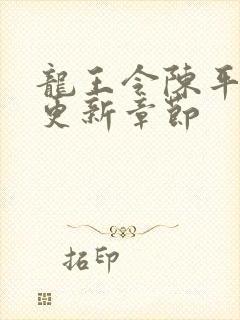 龍王令陳平
更新章節
拓印